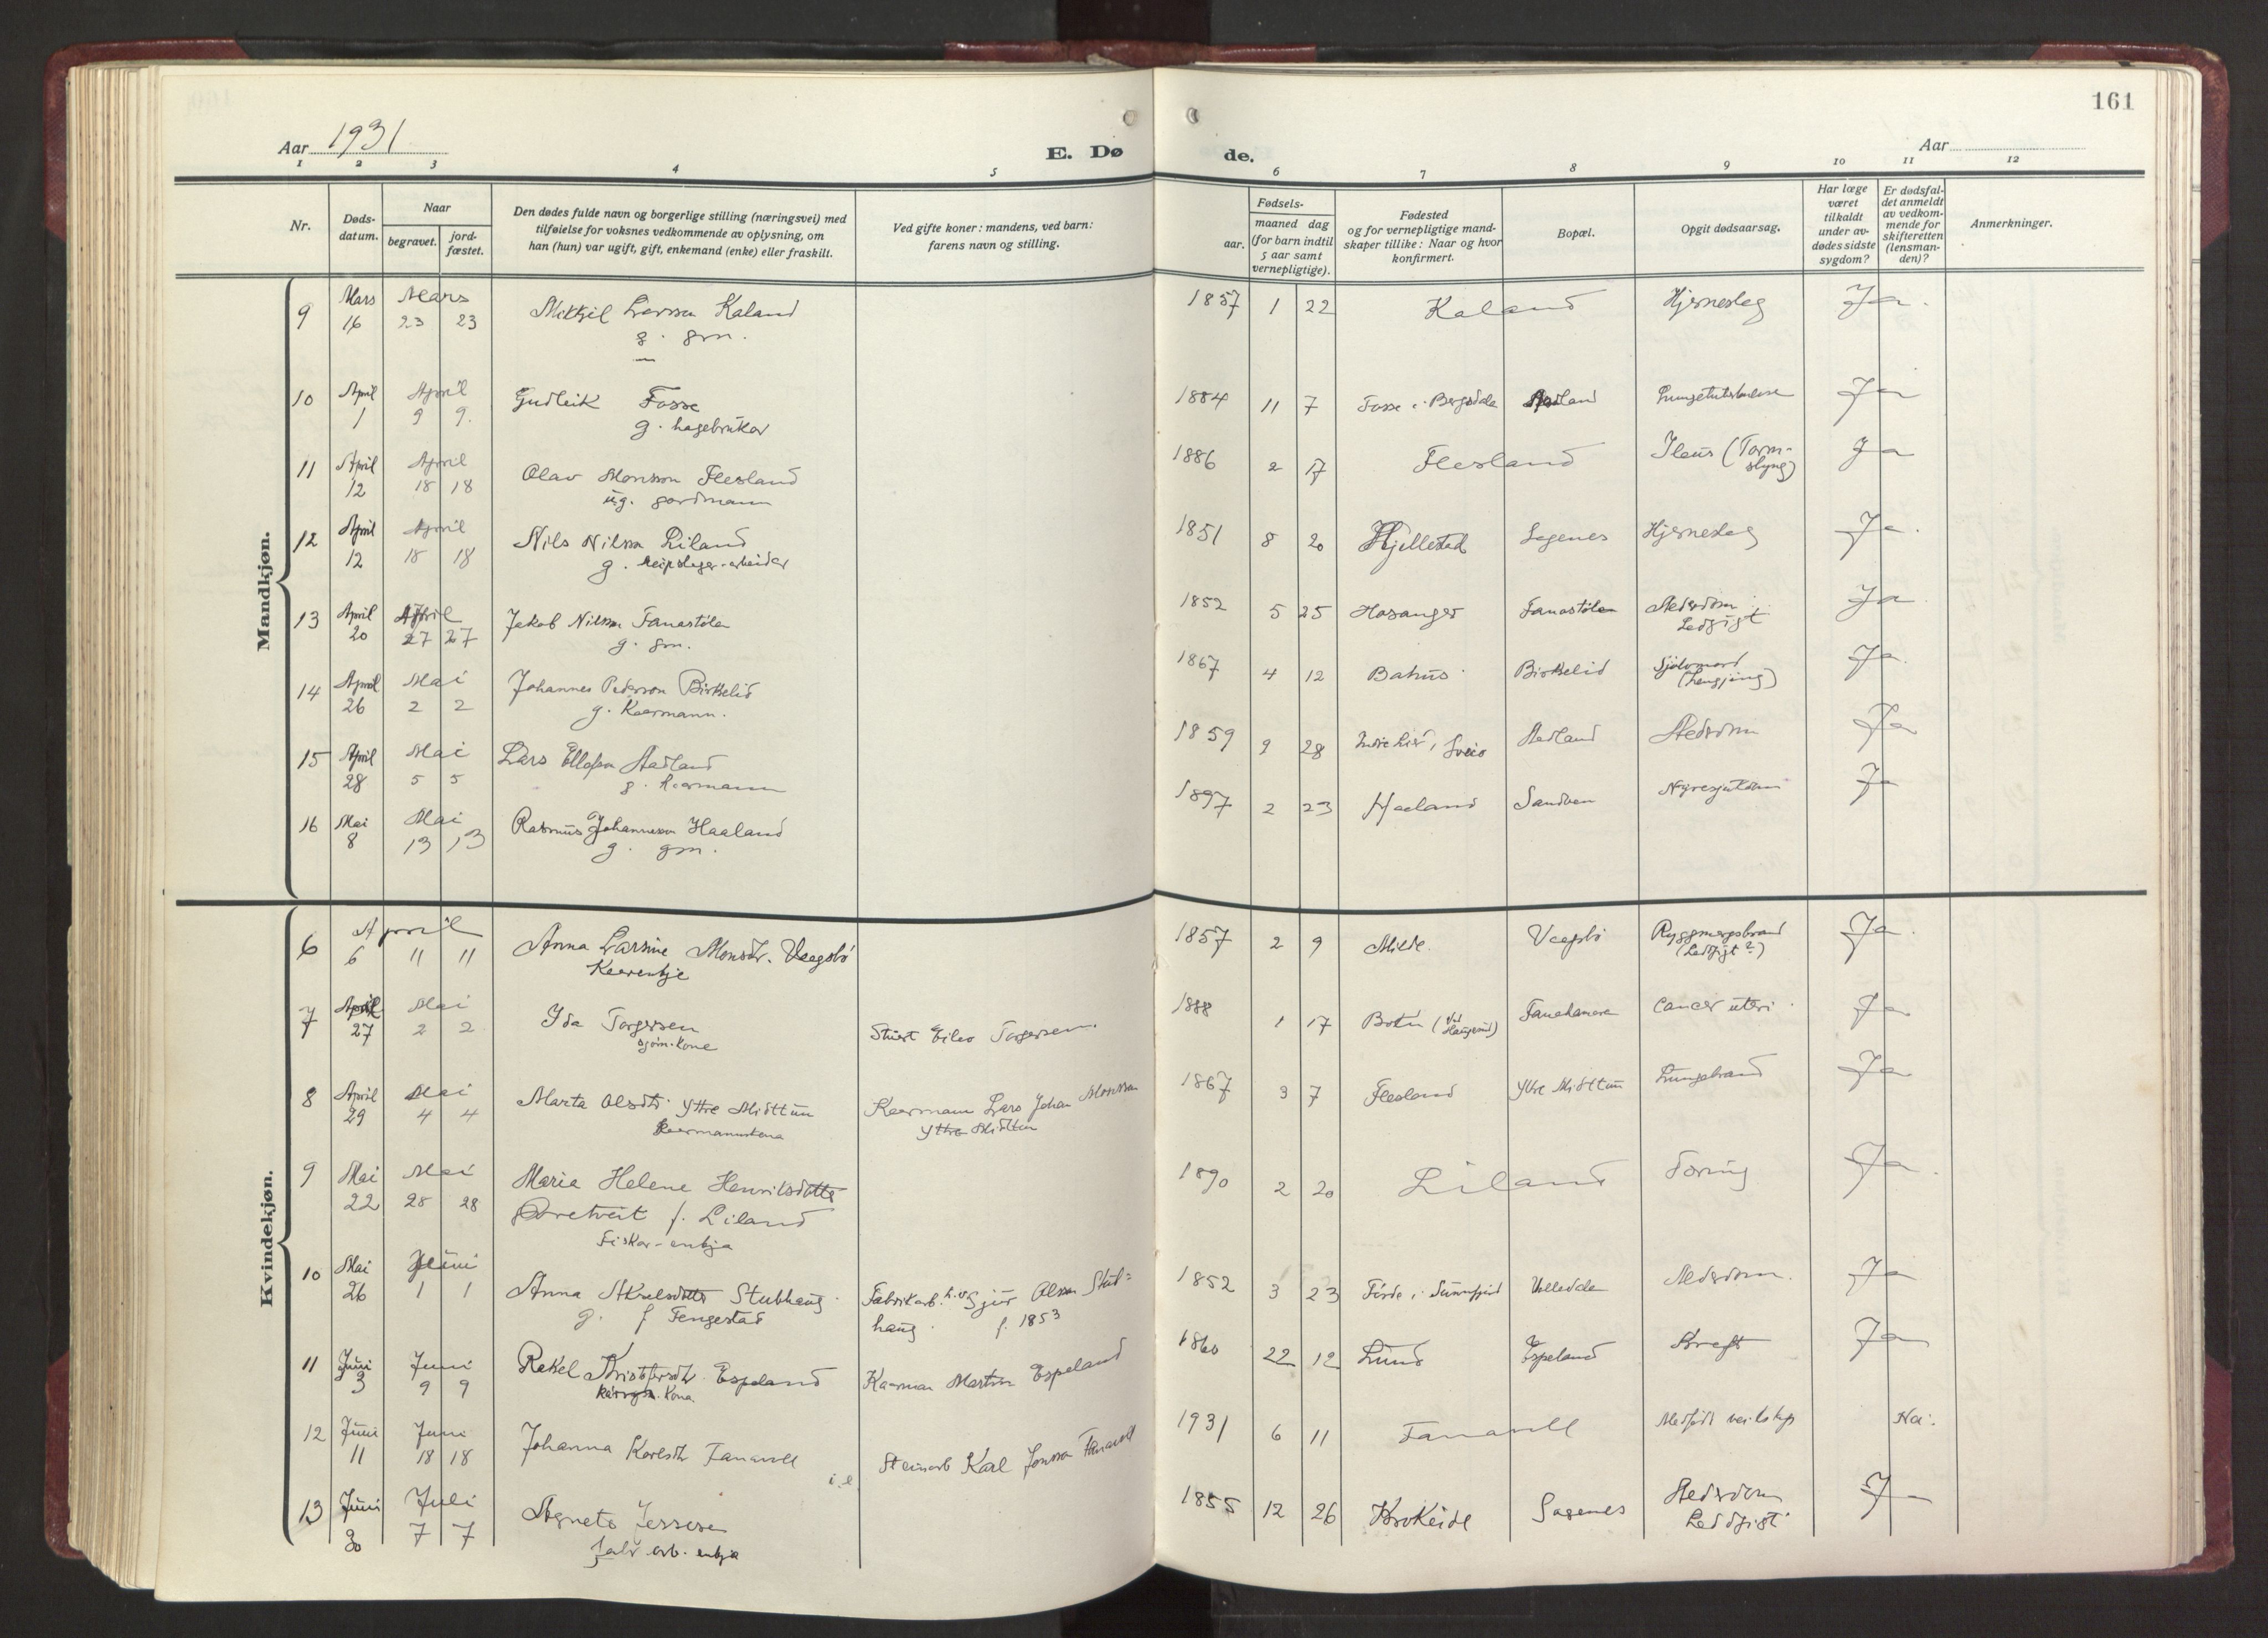 161
Aar 1931
E. Dø
de.
Aar
1 2 3 4 5 6 7 8 9 10 11 12
Nr.
Døds-
datum.
Naar
begravet.
jord-
fæstet.
Den dødes fulde navn og borgerlige stilling (næringsvei) med
tilføielse for voksnes vedkommende av oplysning, om
han (hun) var ugift, gift, enkemand (enke) eller fraskilt.
Ved gifte koner: mandens, ved barn:
farens navn og stilling.
Fødsels-
aar.
maaned dag
(for barn indtil
5 aar samt
vernepligtige).
Fødested
og for vernepligtige mand-
skaper tillike: Naar og hvor
konfirmert.
Bopæl.
Opgit dødsaarsag.
Har læge
været
tilkaldt
under av-
dødes sidste
sygdom?
Er dødsfal-
det anmeldt
av vedkom-
mende for
skifteretten
(lensman-
den)?
Anmerkninger.
Mandkjøn.
9 Mars Mars
16 23 23 Larsson Kaland 1857 1 22 Kaland Hjerneslag Ja.
g. grm.
10 April April
1 9 9. Gudleik Fosse 1884 11 7 Fosse i Bergsdal Ja
g. hagebrukar
11 April April
12 18 18 Olav Monsson Flesland 1886 2 17 Flesland Ileus (Tarm-
slyng) Ja
ug. gardmann
12 April April
12 18 18 Nils Nilsson Liland 1851 8 20 Hjellestad Sagenes Hjerneslag Ja.
g. reipslager-arbeidar
13 April April
20 27 27 Jakob Nilsson Fanastølen 1852 5 25 Hosanger Fanastølen Alderdom
Ledgigt Ja
g. grm.
14 April Mai
26 2 2 Johannes Pederson Birkelid 1867 4 12 Birkelid Sjølvmord
(hengjing) Ja.
g. Kaarmann.
15 April Mai
28 5 5 Lars Aadland 1859 9 28 Indre Lier, Sveio Aadland Alderdom Ja
g. kaarmann
16 Mai Mai
8 13 13 Rasmus Johannesson Haaland 1897 2 23 Haaland Sandven Nyresjukdom Ja
g. grm.
Kvindekjøn.
6 April
6 11 11 Anna Larsine Monsdtr. Vaagsbø 1857 2 9 Milde. Vaagsbø Ryggmergsbrand
(Ledgigt?) Ja.
Kaarenkje
7 April Mai
27 2 2 Yda Torgersen Stuert Eilev Torgersen. 1888 1 17 (ved
Haugesund) Fanahamaren Cancer uteri. Ja
sjøm. kone
8 April Mai
29 4 4 Marta Olsdtr. Ytre Midttun Kaarmann Lars Johan Monsson
Ytre Midttun 1867 3 7 Flesland Ytre Midttun Lungebrand Ja
Kaarmannskona
9 Mai Mai
22 28 28 Maria Helene Henriksdotter 1890 2 20 Liland Tæring Ja.
f. Liland
Fiskar-enkja
10 Mai Juni
26 1 1 Anna Akselsdotter Stubhaug Fabrikarb. Sjur Olsson Stub=
haug. f. 1853 1852 3 23 Førde i Sunnfjord Alderdom. Ja
g. f Fengestad
11 Juni Juni
3 9 9 Rakel Kristofersdtr. Espeland Kaarman Martin Espeland 1860 22 12 Lund Espeland Kreft Ja
kårmann. kona.
12 Juni Juni
11 18 18 Johanna Karlsdtr Fanavoll Steinarb Karl Jonsson Fanavoll 1931 6 11 Fanavoll Medfødt veikskap Nei.
13 Juni Juli
30 7 7 Agneta Jenssen 1855 12 26 Krokeide Sagenes Alderdom
Ledgigt Ja
arb. enkja